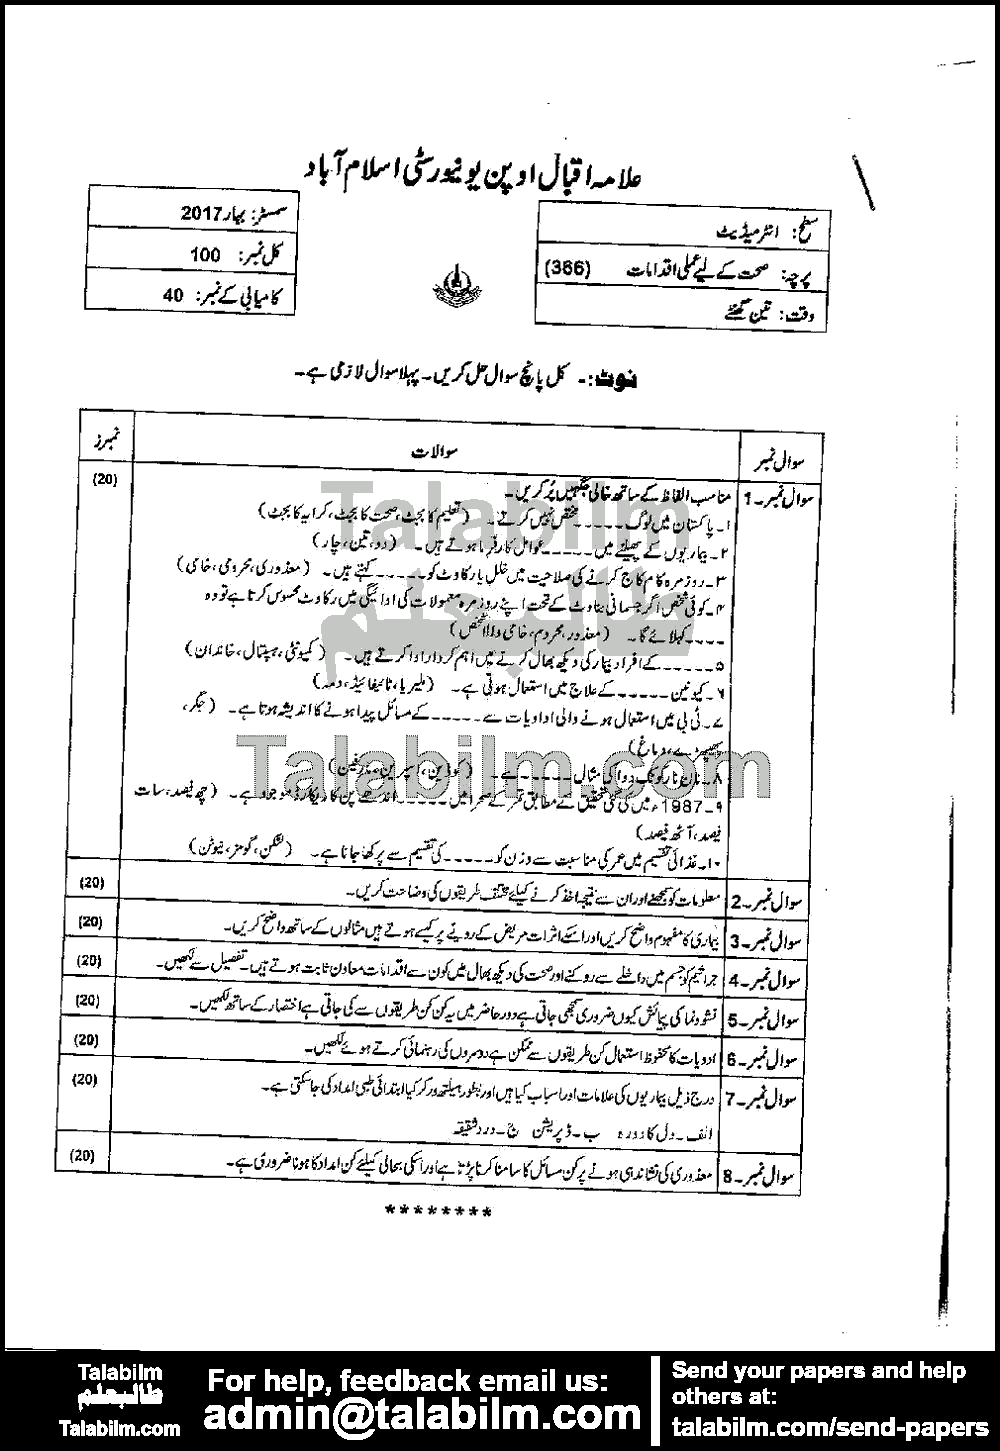 علامہ اقبال اوپن یونیورسٹی اسلام آباد
سطح: انٹرمیڈیٹ
پرچہ: صحت کے لیے عملی اقدامات (366)
وقت: تین گھنٹے
سمسٹر: بہار 2017
کل نمبر: 100
کامیابی کے نمبر: 40
نوٹ:۔ کل پانچ سوال حل کریں۔ پہلا سوال لازمی ہے۔
سوال نمبر سوالات نمبرز
سوال نمبر۔1 مناسب الفاظ کے ساتھ خالی جگہیں پُر کریں۔ (20)
۱۔ پاکستان میں لوگ ۔۔۔۔۔ مختص نہیں کرتے۔ (تعلیم کا بجٹ، صحت کا بجٹ، کرایہ کا بجٹ)
۲۔ بیماریوں کے پھیلنے میں ۔۔۔۔۔ عوامل کارفرما ہوتے ہیں۔ (دو، تین، چار)
۳۔ روزمرہ کام کاج کرنے کی صلاحیت میں خلل یا رکاوٹ کو ۔۔۔۔۔ کہتے ہیں۔ (معذوری، محرومی، خامی)
۴۔ کوئی شخص اگر جسمانی بناوٹ کے تحت اپنے روزمرہ معمولات کی ادائیگی میں رکاوٹ محسوس کرتا ہے تو وہ
۔۔۔۔ کہلائے گا۔ (معذور، محروم، خامی والا شخص)
۵۔ ۔۔۔۔۔ کے افراد بیمار کی دیکھ بھال کرنے میں اہم کردار ادا کرتے ہیں۔ (کمیونٹی، ہسپتال، خاندان)
۶۔ کیونین ۔۔۔۔۔ کے علاج میں استعمال ہوتی ہے۔ (ملیریا، ٹائیفائیڈ، دمہ)
۷۔ ٹی بی میں استعمال ہونے والی ادویات سے ۔۔۔۔۔ کے مسائل پیدا ہونے کا اندیشہ ہوتا ہے۔ (جگر،
پھیپھڑے، دماغ)
۸۔ نان نارکوٹک دوا کی مثال ۔۔۔۔۔ ہے۔ (کوڈین، اسپرین، مارفین)
۹۔ 1987ء میں کی گئی تحقیق کے مطابق تھر کے صحرا میں ۔۔۔۔۔ اندھے پن کا ریکارڈ موجود ہے۔ (چھ فیصد، سات
فیصد، آٹھ فیصد)
۱۰۔ غذائی تقسیم میں عمر کی مناسبت سے وزن کو ۔۔۔۔۔ کی تقسیم سے پرکھا جاتا ہے۔ (لشکن، گومز، نیوٹن)
سوال نمبر۔2 معلومات کو سمجھنے اور ان سے نتیجہ اخذ کرنے کیلئے مختلف طریقوں کی وضاحت کریں۔ (20)
سوال نمبر۔3 بیماری کا مفہوم واضح کریں اور اسکے اثرات مریض کے رویے پر کیسے ہوتے ہیں مثالوں کے ساتھ واضح کریں۔ (20)
سوال نمبر۔4 جراثیم کو جسم میں داخلے سے روکنے اور صحت کی دیکھ بھال میں کون سے اقدامات معاون ثابت ہوتے ہیں۔ تفصیل سے لکھیں۔ (20)
سوال نمبر۔5 نشوونما کی پیمائش کیوں ضروری سمجھی جاتی ہے دور حاضر میں یہ کن کن طریقوں سے کی جاتی ہے اختصار کے ساتھ لکھیں۔ (20)
سوال نمبر۔6 ادویات کا محفوظ استعمال کن طریقوں سے ممکن ہے دوسروں کی رہنمائی کرتے ہوئے لکھیں۔ (20)
سوال نمبر۔7 درج ذیل بیماریوں کی علامات اور اسباب کیا ہیں اور بطور ہیلتھ ورکر کیا ابتدائی طبی امداد کی جاسکتی ہے۔ (20)
الف۔ دل کا دورہ ب۔ ڈپریشن ج۔ درد شقیقہ
سوال نمبر۔8 معذوری کی نشاندہی ہونے پر کن مسائل کا سامنا کرنا پڑتا ہے اور اسکی بحالی کیلئے کن امداد کا ہونا ضروری ہے۔ (20)
********
Talabilm
طالبعلم
Talabilm.com
Talabilm
طالبعلم
Talabilm.com
For help, feedback email us:
admin@talabilm.com
Send your papers and help
others at:
talabilm.com/send-papers